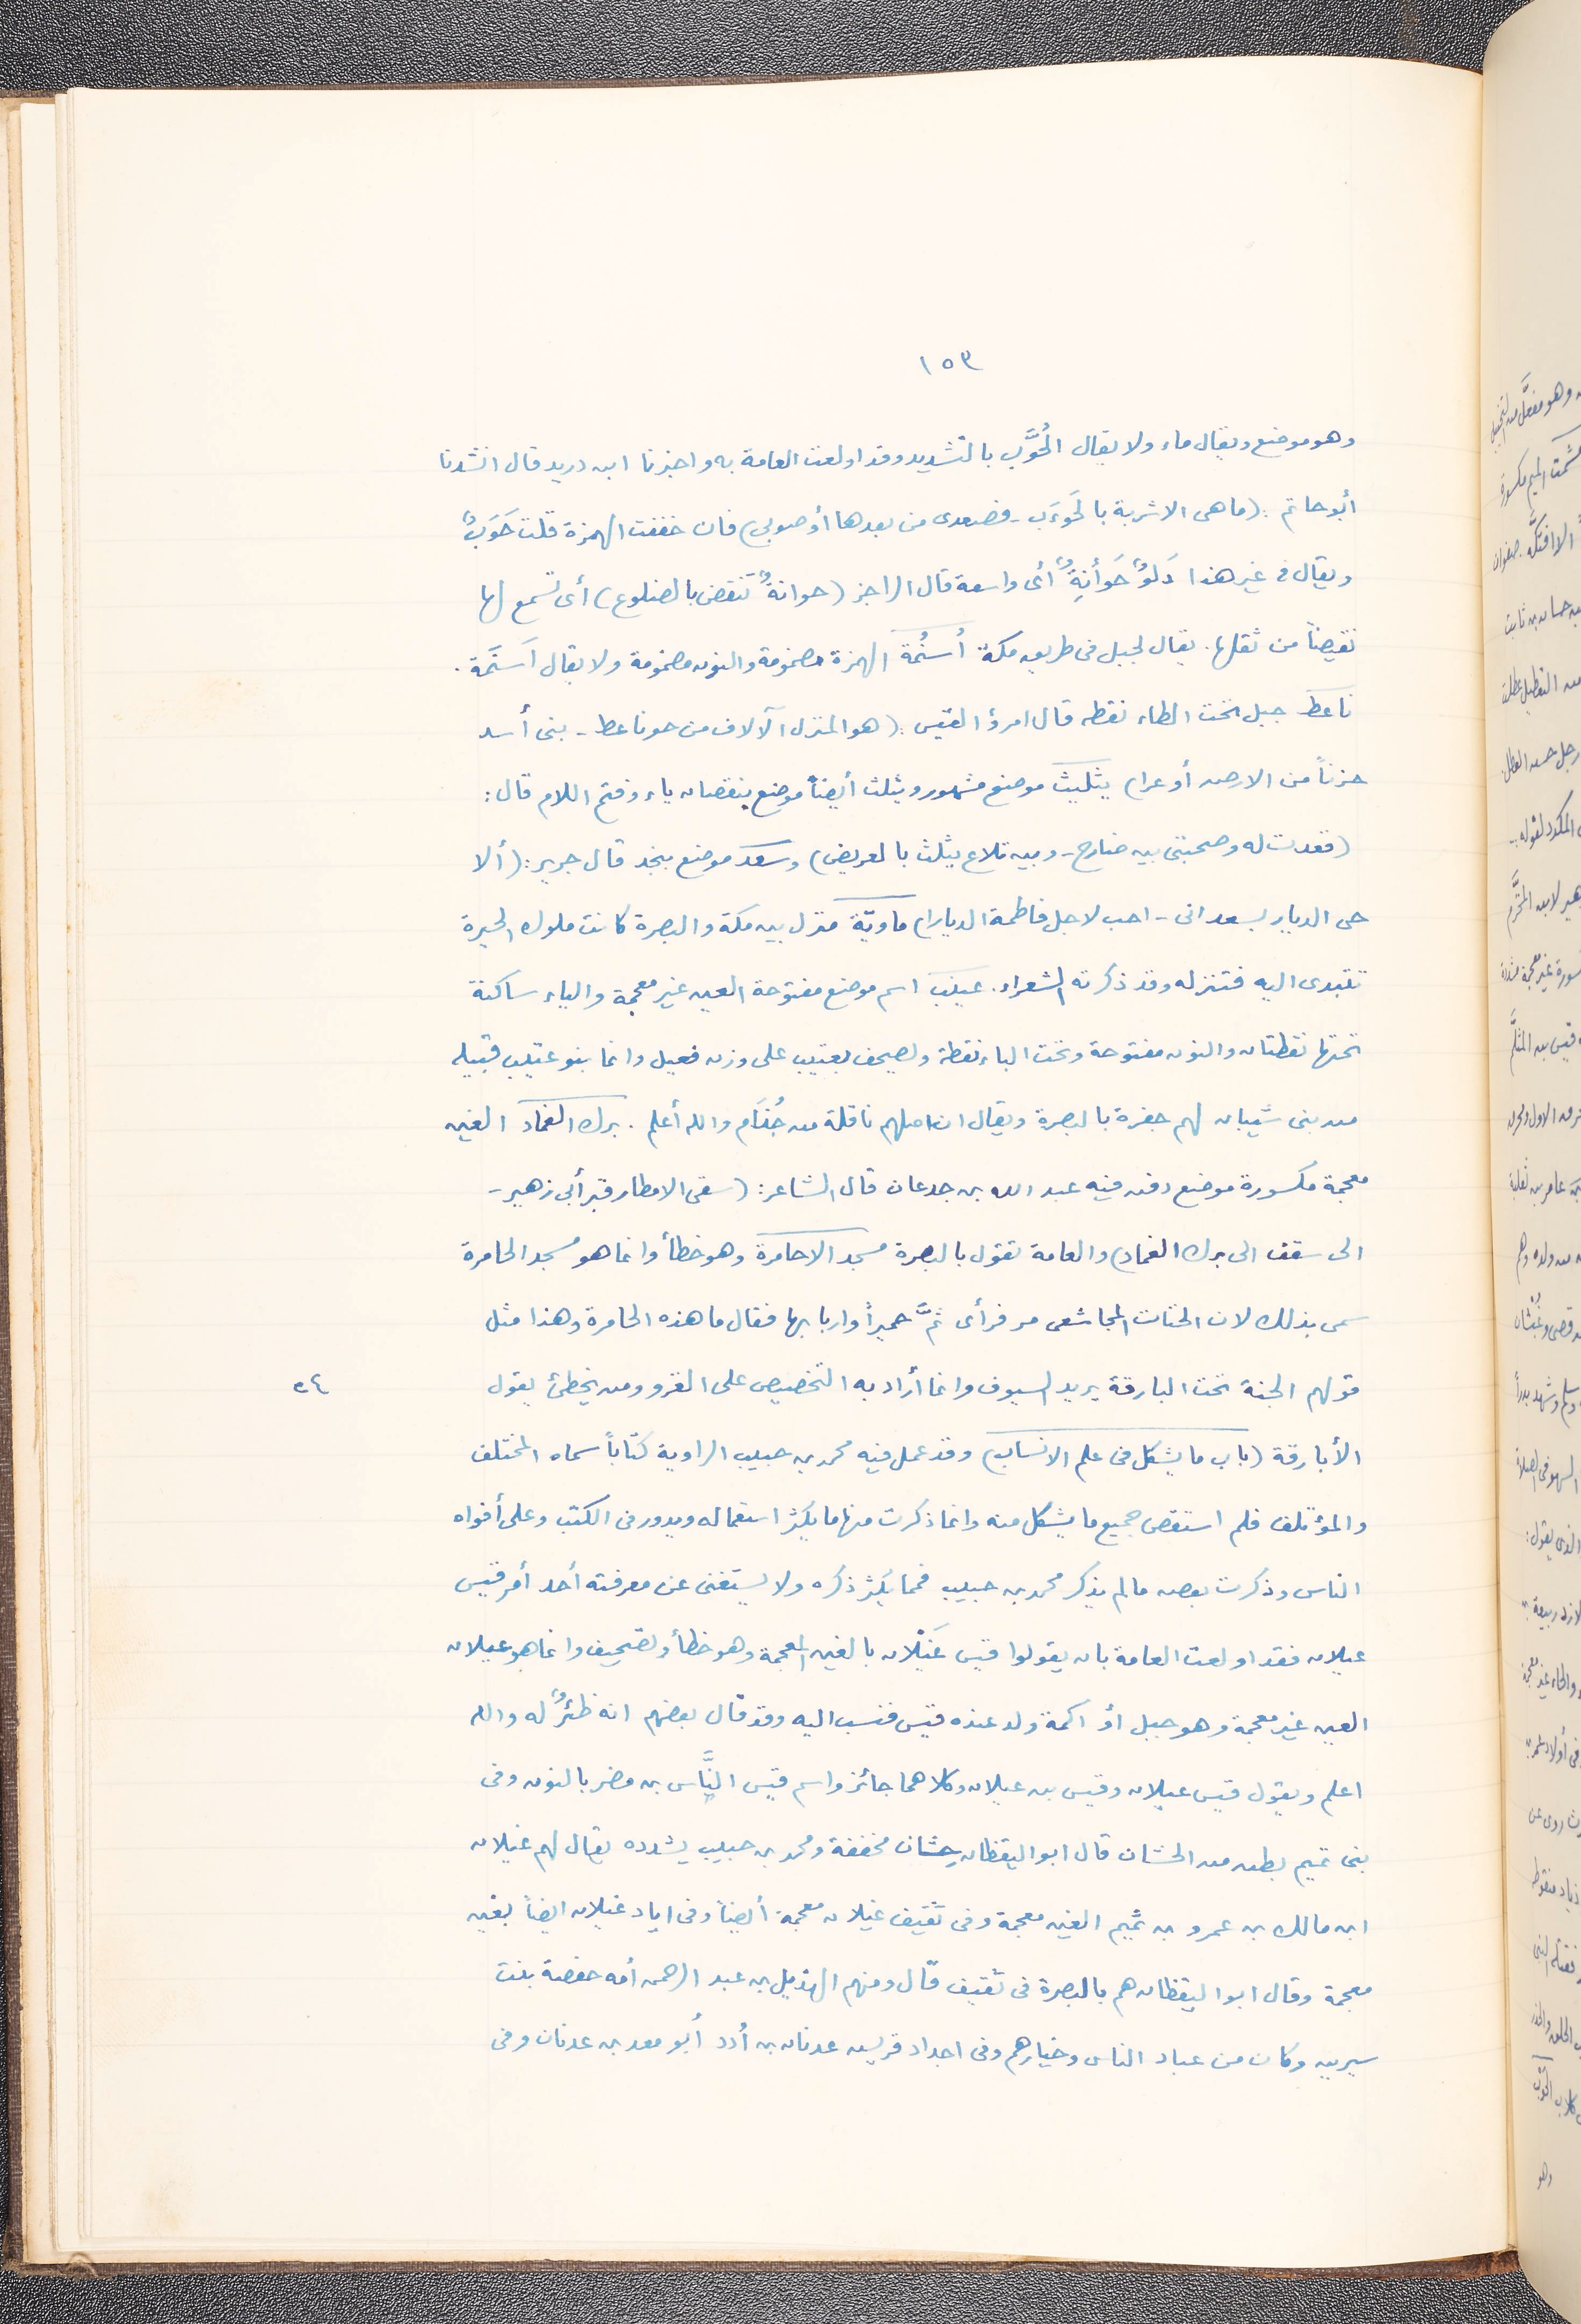 ١٥٣
وهو موضع ويقال ماء ولا يقال الحُوَّب بالتشديد وقد اولعت العامة به واخبرنا ابن دريد قال انشدنا
أبو حاتم: (ما هى الا شربة بالحَوءَب - فصعدى من بعدها أو صوبى) فان خففت الهمزة قلت حَوَبٌ
ويقال فى غير هذا دَلوٌ حَوأنِةٌ أى واسعة قال الراجز (حوانةٌ تَنقض بالضلوع) أى تسمع لها
نقيضاً من ثقلها. يقال لجبل فى طريق مكة أُسنُمة الهمزة مضمومة والنون مضمومة ولا يقال أَسنَمة.
ناعط جبل تحت الطاء نقطه قال امرؤ القيس: (هو المنزل الآلاف من حو ناعط - بنى أسد
حزناً من الارض أوعرا) يثليث موضع مشهور ويثلث أيضاً موضع بنقصان ياء وفتح اللام قال:
(قعدت له وصحبتى بين ضارج - وبين تلاع يثلث بالعريض) وسعد موضع بنجد قال جرير: (ألا
حى الديار بسعد انى - احب لاجل فاطمة الديارا) ماويّة منزل بين مكة والبصرة كانت ملوك الحيرة
تتبدى اليه فتنزله وقد ذكرته الشعراء. عينَب اسم موضع مفتوحة العين غير معجمة والياء ساكنة
تحتها نقطتان والنون مفتوحة وتحت الباء نقطة ويصحف بعتيب على وزن فعيل وانما بنو عتيب قبيله
من بنى شيبان لهم جفرة بالبصرة ويقال ان اصلهم ناقلة من جُذَام والله أعلم. برك الغماد الغين
معجمة مكسورة موضع دفن فيه عبد الله بن جدعان قال الشاعر: (سقى الامطار قبر أبى زهير -
الى سقف الى برك الغماد) والعامة تقول بالبصرة مسجد الاحامرة وهو خطأ وانما هو مسجد الحامرة
سمى بذلك لان الحتات المجاشعى مر فرأى ثمَّ حميراً واربابها فقال ما هذه الحامرة وهذا مثل
قولهم الجنة تحت البارقة يريد السيوف وانما أراد به التخصيص على الغزو ومن يخطئ يقول
٥٤
الأبارقة (باب ما يشكل فى علم الانساب) وقد عمل فيه محمد بن حبيب الراوية كتاباً سماه المختلف
والمؤتلف فلم استقص جميع ما يشكل منه وانما ذكرت منها ما يكثر استعماله ويدور فى الكتب وعلى أفواه
الناس وذكرت بعض مالم يذكر محمد بن حبيب فمما يكثر ذكره ولا يستغنى عن معرفته أحد أمر قيس
عيلان فقد اولعت العامة بان يقولوا قيس غَيْلان بالغين المعجمة وهو خطأ وتصحيف وانما هو عيلان
العين غير معجمة وهو جبل أو اكمة ولد عنده قيس فنسب اليه وقد قال بعضهم انه ظئرٌ له والله
اعلم ويقول قيس عيلان وقيس بن عيلان وكلاهما جائز واسم قيس النَّاس بن مضر بالنون وفى
بنى تميم بطن من الحشان قال ابو اليقظان حِشان مخففة ومحمد بن حبيب يشدده يقال لهم غيلان
ابن مالك بن عمرو بن تميم الغين معجمة وفى ثقيف غيلان معجمة أيضاً وفى اياد غيلان ايضاً بغين
معجمة وقال ابو اليقظان هم بالبصرة فى ثقيف قال ومنهم الهذيل بن عبد الرحمن أمه حفصة بنت
سيرين وكان من عباد الناس وخيارهم وفى اجداد قريش عدنان بن أُدد أبو معد بن عدنان وفى